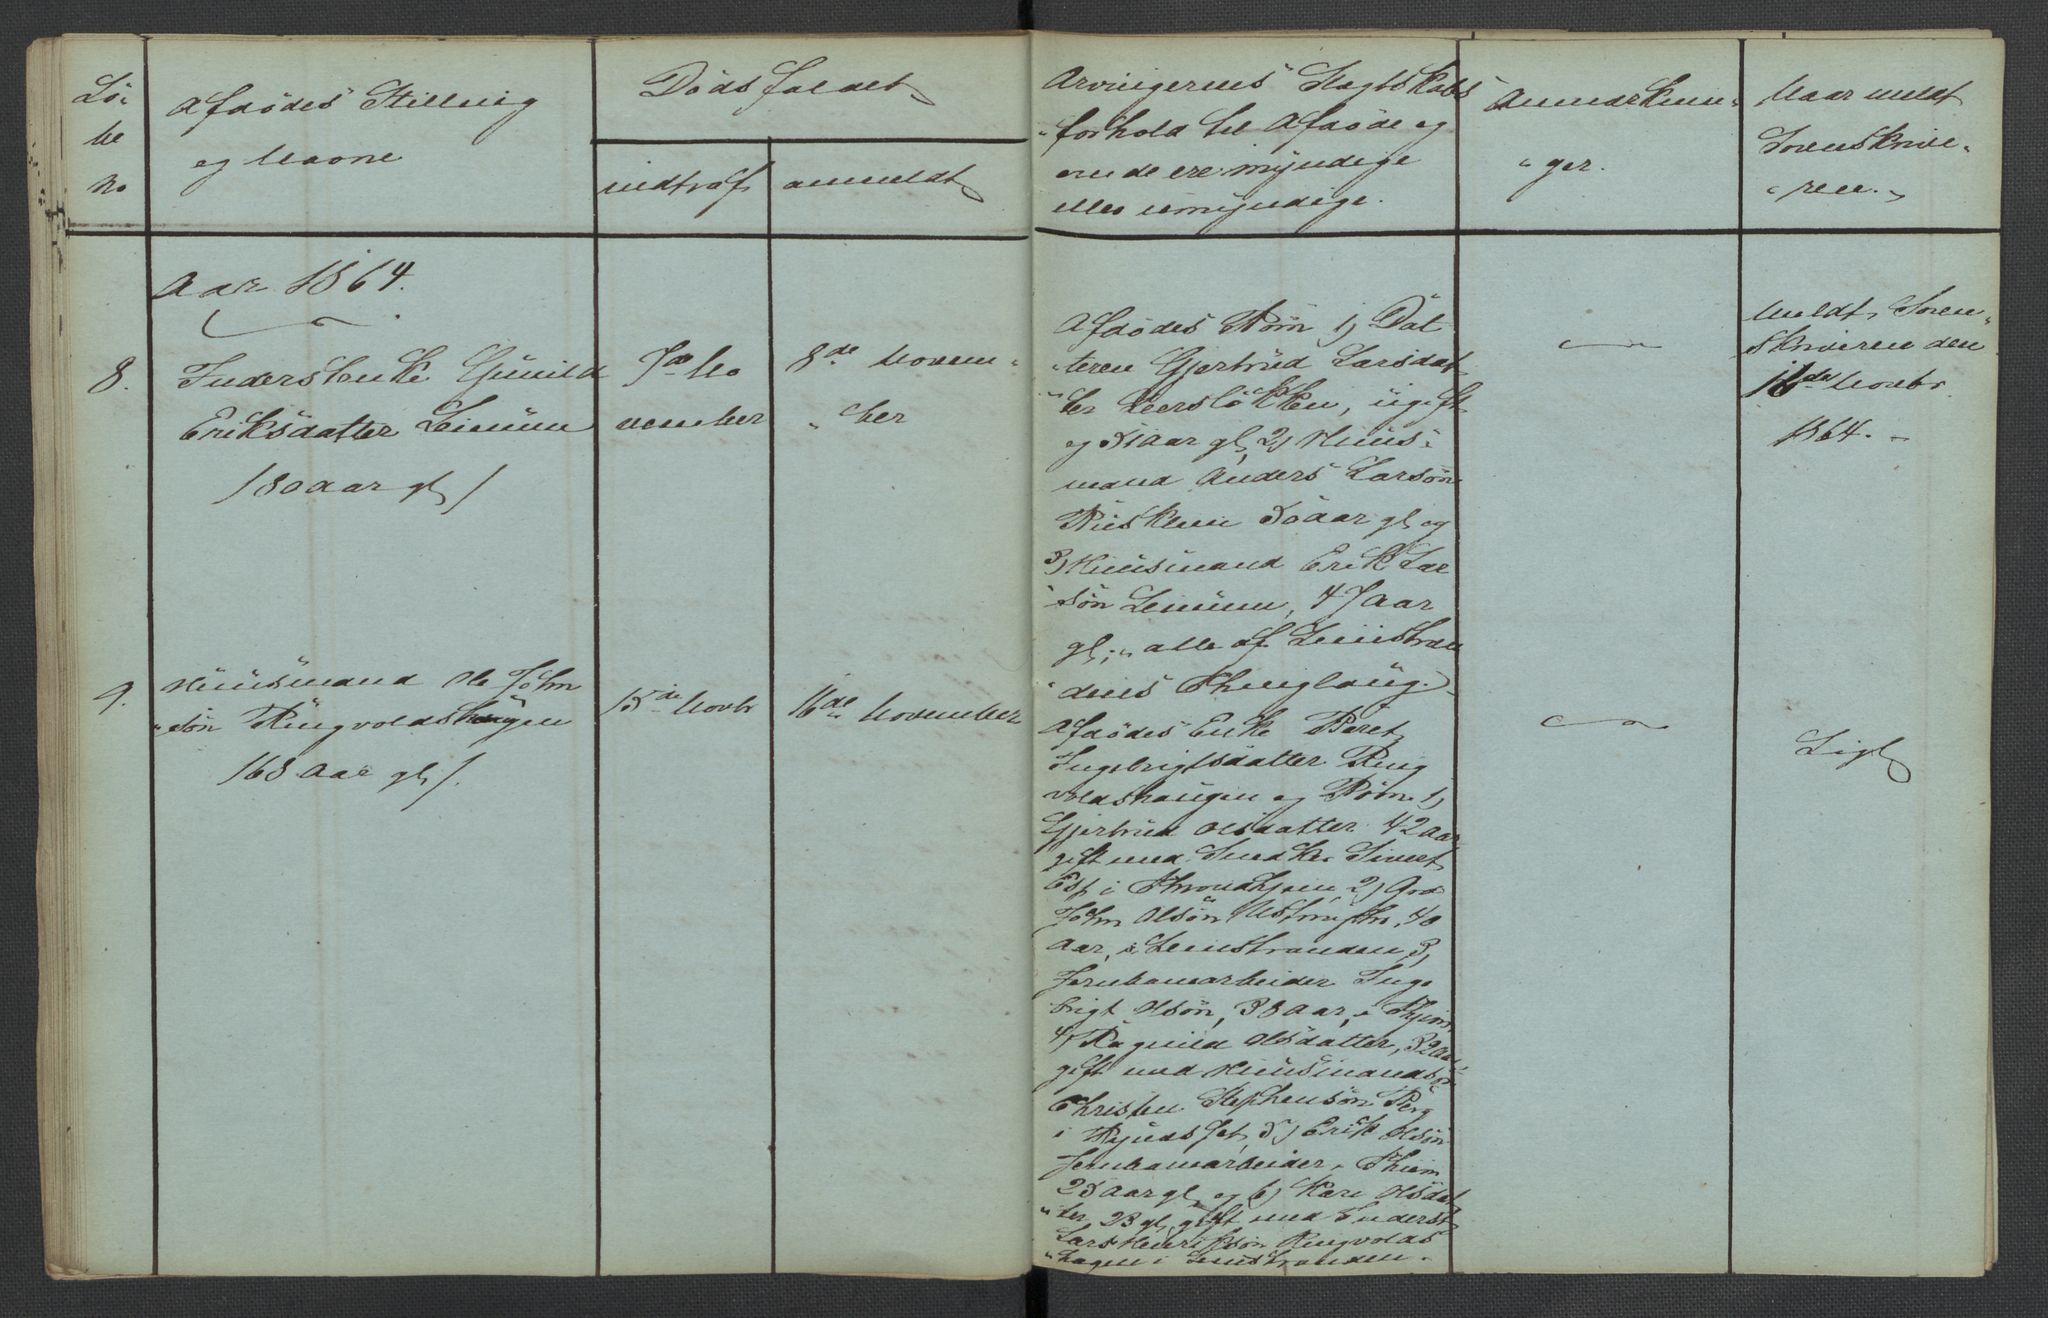 Lö-
be
No
Afdödes Stilling
og Navne
Dödsfaldet
indtraf
anmeldt
Arvingernes Slægtskabs
forhold til Afdöde og
om de ere myndige
eller umyndige.
Anmærknin-
ger.
Naar meldt
Sorenskrive-
ren.
Aar 1864.
8.
Inderstenke Gunild
Eriksdatter Leinum
/80 aar gl/
7de No
vember
8de Novem-
ber
Afdödes Börn 1) Dat
teren Gjertrud Larsdat
ter Leerslökken, ugift
og 51 aar gl, 2) Huus-
mand Anders Larsön
50 aar gl og
3) Huusmand Erik Lar
sön Leinum, 47 aar
gl; alle af Leinstran
dens Thinglaug.
Meldt Soren-
skriveren den
16de Novbr
1864.
9.
Huusmand Ole John
sön Ringvoldshaugen
/68 Aar gl/.
15de Novbr
16de November
Afdödes Enke Beret
Ingebrigtsdatter Ring
voldshaugen og Börn 1)
Gjertrud Olsdatter 42 aar
gift med Snedker Sivert
Esp i Throndhjem 2) Grd
John Olsön 40
Aar, i Leinstranden, 3)
Jernbanearbeider Inge
brigt Olsön, 38 Aar, i Thjem
4) Ragnild Olsdatter, 32 aar
gift med Huusmand
Christen Stephensön Berg
i Byneset, 5) Erik Olsön
Jernbanearbeider, Thjem
25 Aar gl og 6) Kari Olsdat
ter 23 gl, gift med Inderst
Lars Henriksön Ringvolds
hagen i Leinstranden.
Ligl